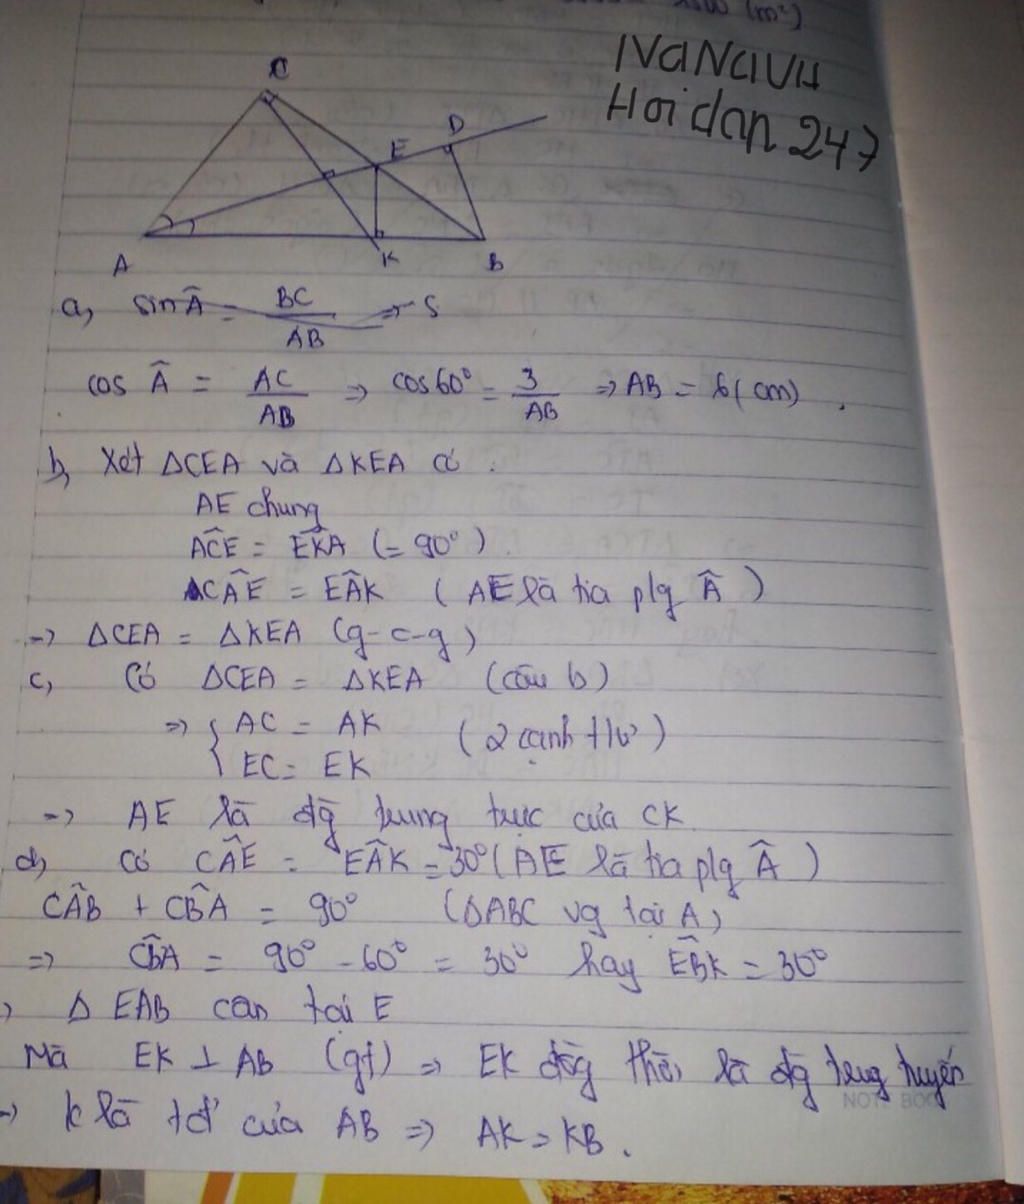 (m²)
IVANAVH
Hoidap 247
C
D
E
A
K
B
a, sin Â = BC/AB => S
cos Â = AC/AB => cos60° = 3/AB => AB = 6(cm).
b, Xét ΔCEA và ΔKEA có :
AE chung
AĈE = EK̂A (= 90°).
CÂE = EÂK ( AE là tia p/g Â )
=> ΔCEA = ΔKEA (g-c-g)
c, Có ΔCEA = ΔKEA (câu b)
=> { AC = AK ( 2 cạnh t/ứ )
EC = EK
=> AE là đg trung trực của CK
d, Có CÂE = EÂK = 30° ( AE là tia p/g Â )
CÂB + CB̂A = 90° (ΔABC vg tại A)
=> CB̂A = 90° - 60° = 30° hay EB̂K = 30°
=> Δ EAB cân tại E
Mà EK ⊥ AB (gt) => EK đồng thời là đg trung tuyến
NOTE BOOK
=> K là tđ của AB => AK = KB.